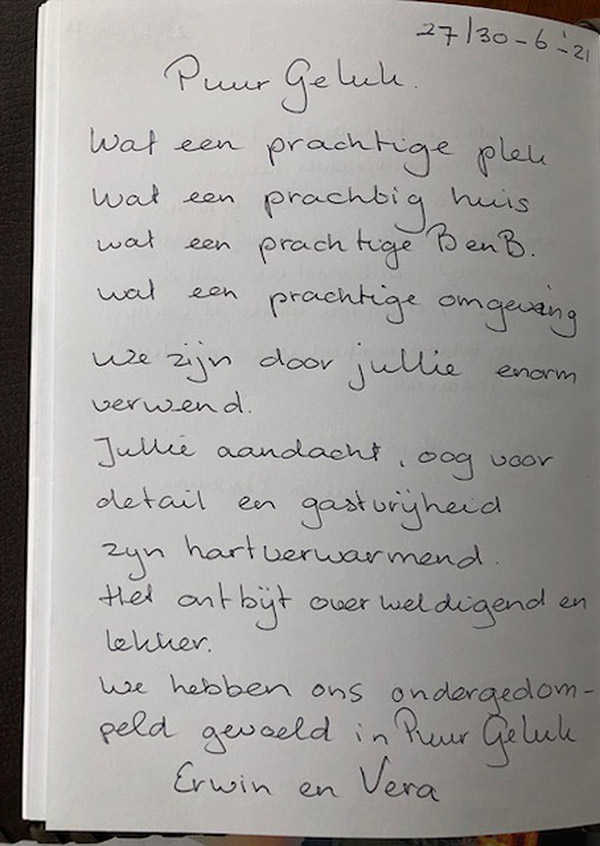 27/30-6-'21
Puur Geluk.
Wat een prachtige plek
Wat een prachtig huis
wat een prachtige BenB.
wat een prachtige omgeving
We zijn door jullie enorm
verwend.
Jullie aandacht, oog voor
detail en gastvrijheid
zijn hartverwarmend.
Het ontbijt overweldigend en
lekker.
We hebben ons ondergedom-
peld gevoeld in Puur Geluk
Erwin en Vera